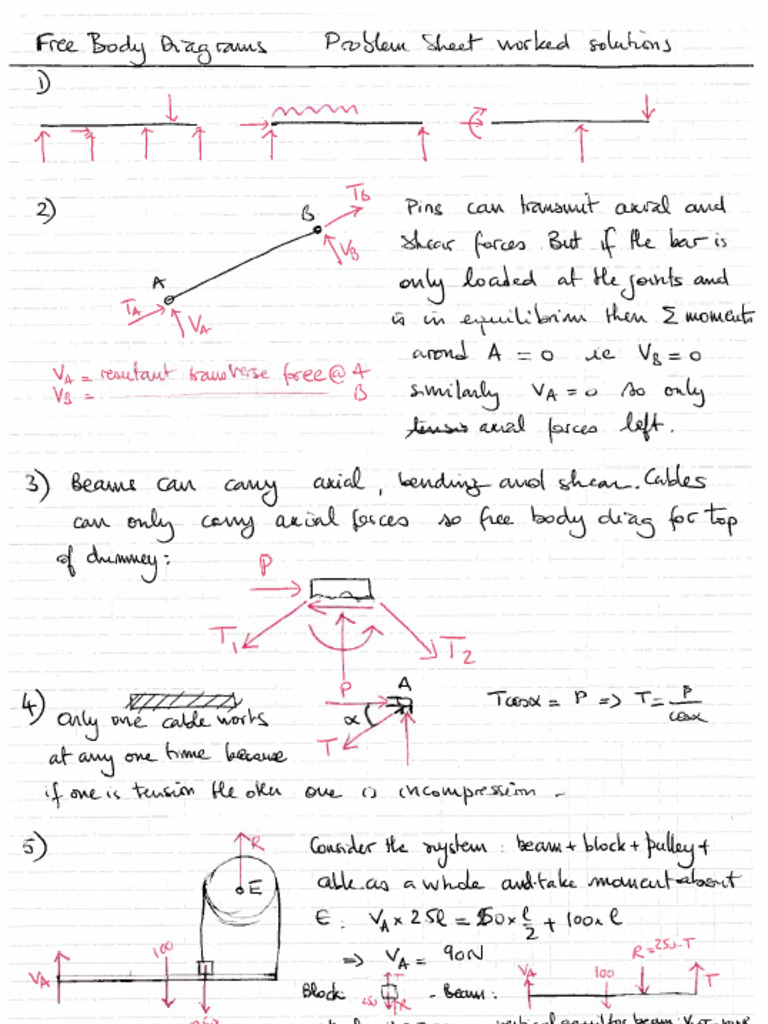 Free Body Diagrams Problem Sheet worked solutions
1)
2)
A
B
T_A
V_A
T_B
V_B
V_A = resultant transverse force @ A
V_B = B
Pins can transmit axial and
shear forces. But if the bar is
only loaded at the joints and
is in equilibrium then Σ moments
around A = 0 ie V_B = 0
similarly V_A = 0 so only
axial forces left.
3) Beams can carry axial, bending and shear. Cables
can only carry axial forces so free body diag for top
of chimney:
P
T_1
T_2
4) Only one cable works
at any one time because
if one is tension the other one is in compression.
P
A
α
T
Tcosα = P => T = P/cosα
5)
R
E
V_A
100
Consider the system: beam + block + pulley +
cable as a whole and take moment about
E: V_A × 2.5l = 250 × l/2 + 100 × l
=> V_A = 90N
Block:
T
250
R
- Beam:
V_A
100
R = 250-T
T